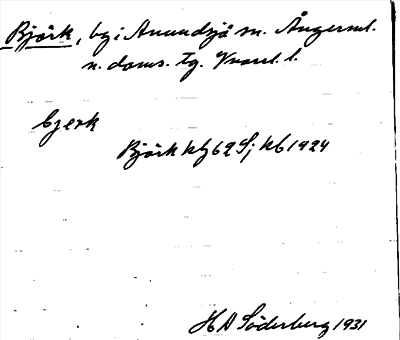 Björk, by i Anundsjö sn. Ångerml.
n. doms. tg. Vnorrl. l.
bjerk
Björk kbg 62 S; kb 1924
H A Söderberg 1931